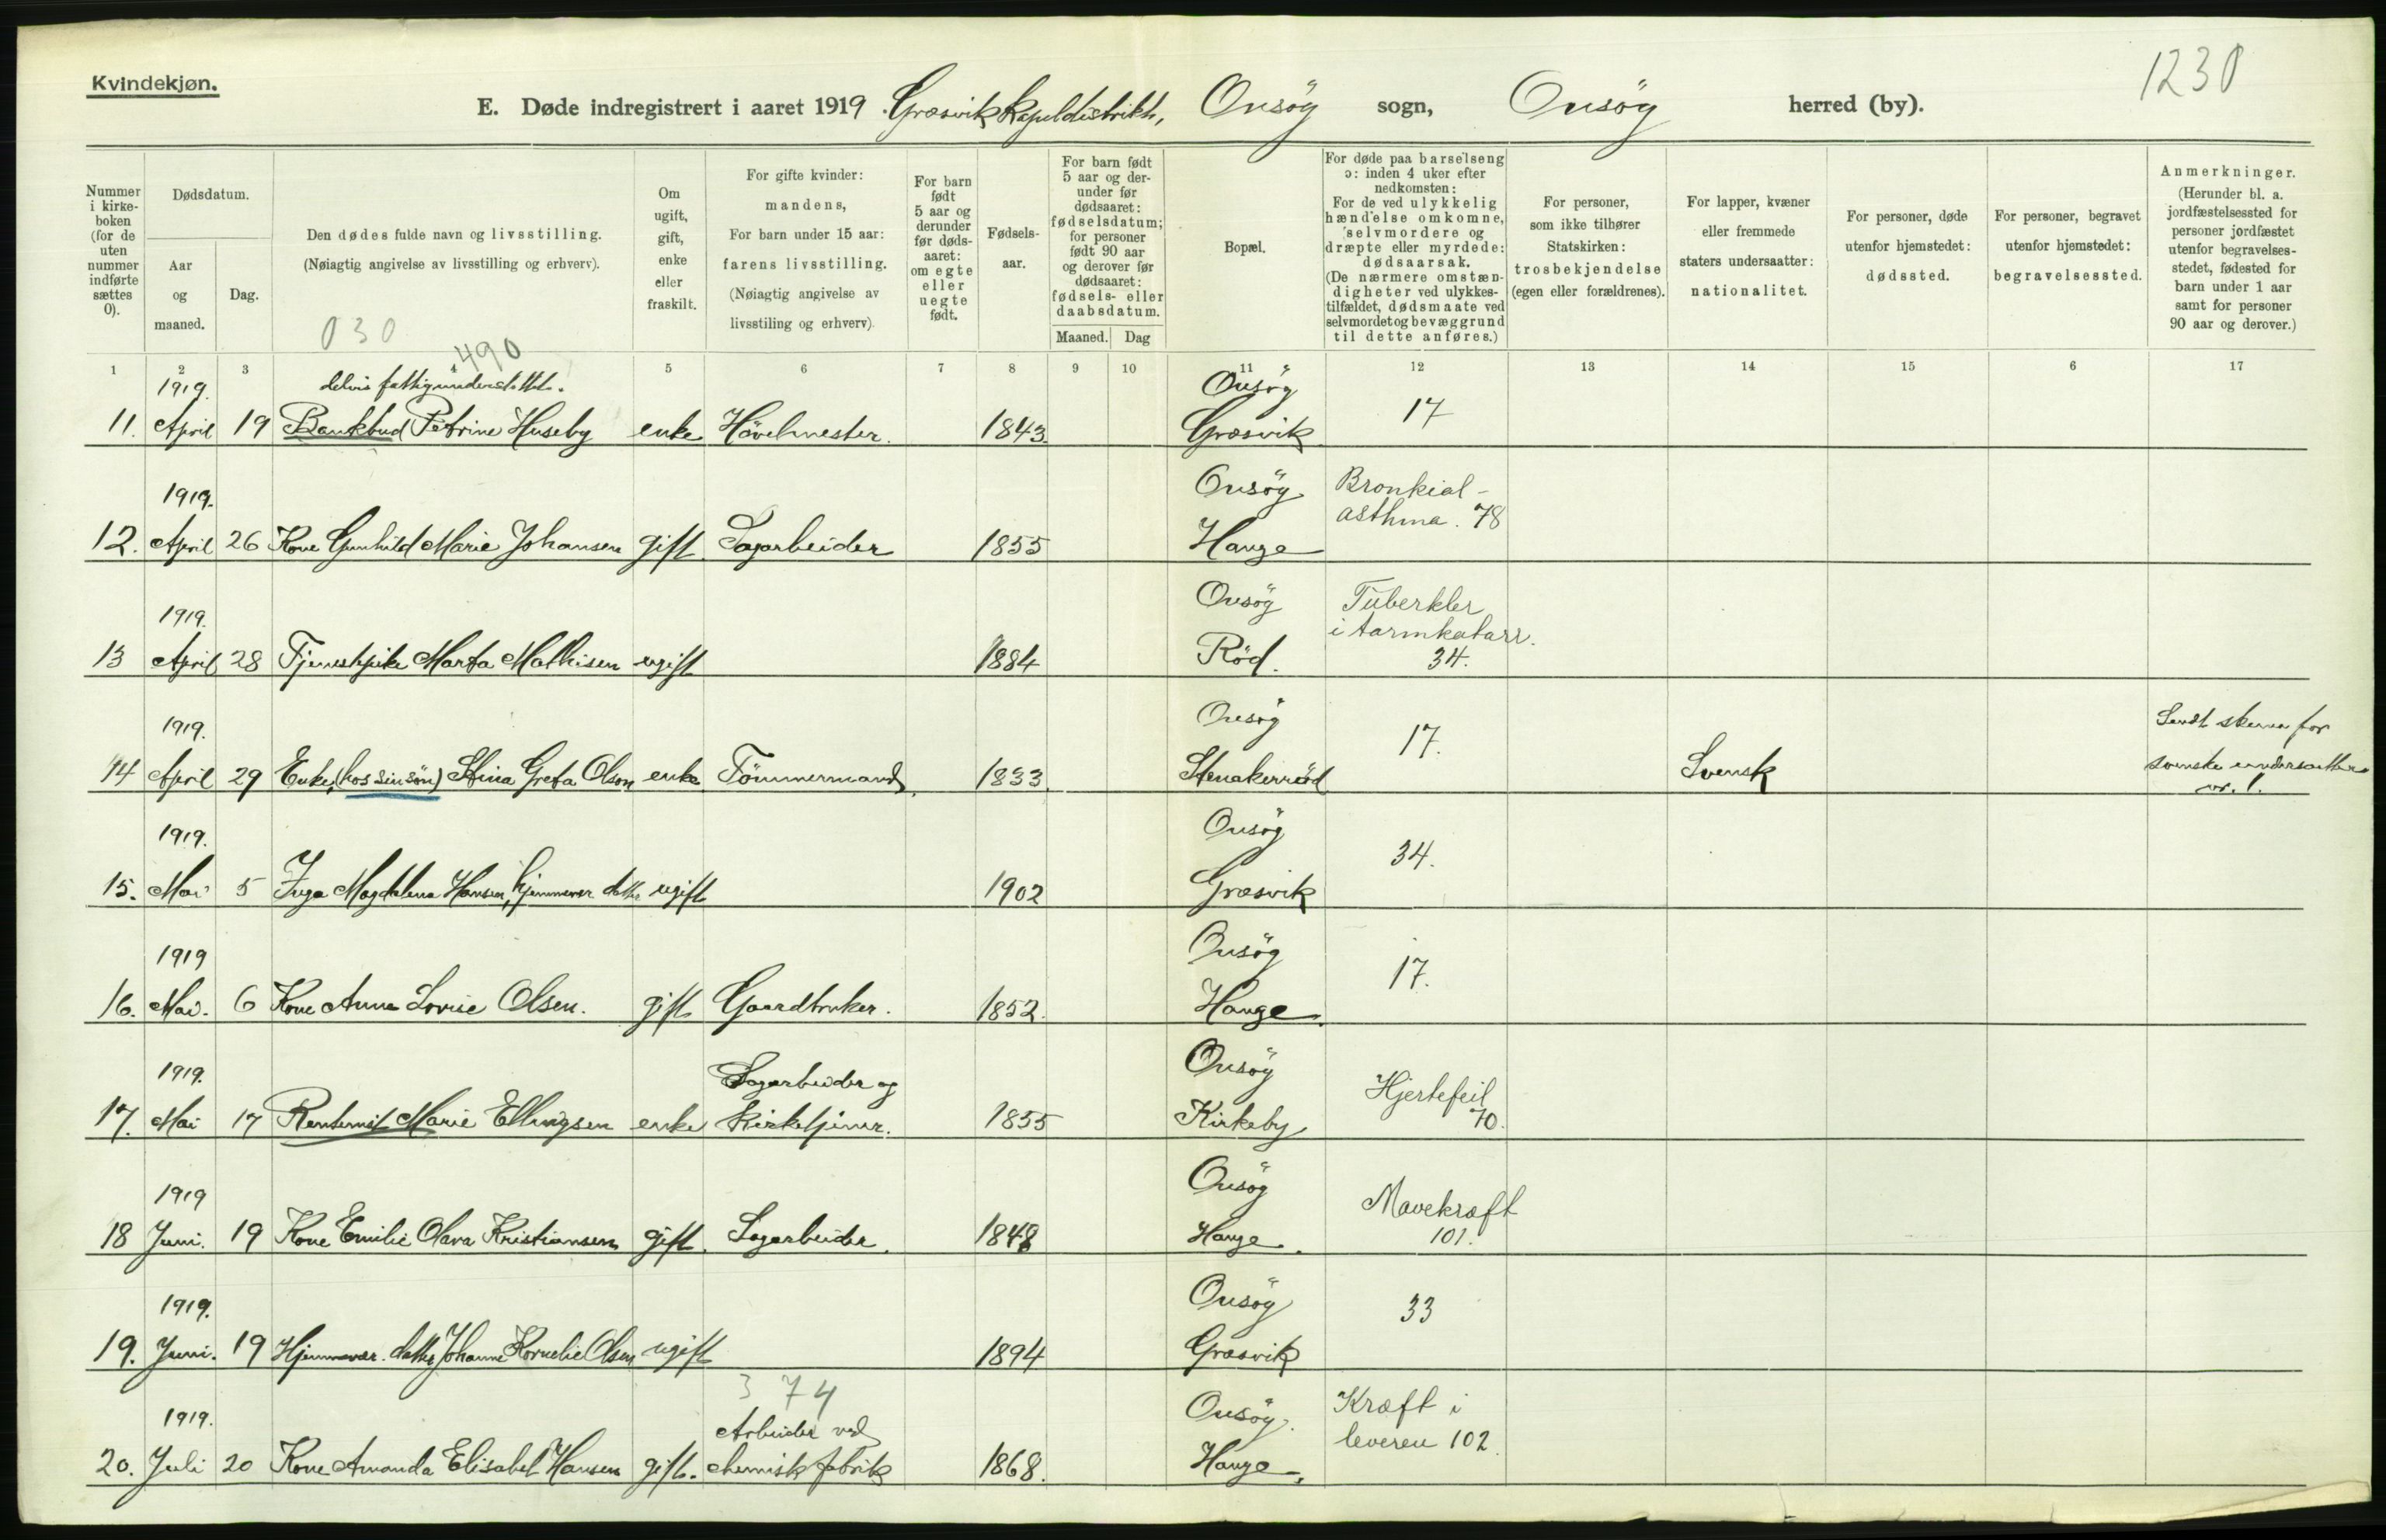 Kvindekjøn.
1230
E. Døde indregistrert i aaret 1919. Græsvik Kapeldistrikt, Onsöy sogn, Onsöy herred (by).
Nummer i kirkeboken (for de uten nummer indførte sættes 0).
Dødsdatum.
Aar og maaned.
Dag.
Den dødes fulde navn og livsstilling.
(Nøiagtig angivelse av livsstilling og erhverv).
Om ugift, gift, enke eller fraskilt.
For gifte kvinder: mandens,
For barn under 15 aar: farens livsstilling.
(Nøiagtig angivelse av livsstiling og erhverv).
For barn født 5 aar og derunder før dødsaaret: om egte eller uegte født.
Fødselsaar.
For barn født 5 aar og derunder før dødsaaret: fødselsdatum; for personer født 90 aar og derover før dødsaaret: fødsels- eller daabsdatum.
Maaned. Dag
Bopæl.
For døde paa barselseng ɔ: inden 4 uker efter nedkomsten:
For de ved ulykkelig hændelse omkomne, selvmordere og dræpte eller myrdede: dødsaarsak.
(De nærmere omstændigheter ved ulykkestilfældet, dødsmaate ved selvmordet og bevæggrund til dette anføres.)
For personer, som ikke tilhører Statskirken: trosbekjendelse (egen eller forældrenes).
For lapper, kvæner eller fremmede staters undersaatter: nationalitet.
For personer, døde utenfor hjemstedet: dødssted.
For personer, begravet utenfor hjemstedet: begravelsessted.
Anmerkninger.
(Herunder bl. a. jordfæstelsessted for personer jordfæstet utenfor begravelsesstedet, fødested for barn under 1 aar samt for personer 90 aar og derover.)
030
490
1 2 3 4 5 6 7 8 9 10 11 12 13 14 15 6 17
1919. delvis fattigunderstöttet. Onsöy
11. April 19 Bankbud Petrine Huseby enke Hövelmester. 1843. Græsvik 17
1919. Onsöy Bronkial-
asthma. 78
12. April 26 Kone Gunhild Marie Johansen gift. Sagarbeider 1855 Hauge
1919. Onsöy Tuberkler
i tarmkatarr.
13 April 28 Tjenestepike Marta Mathisen ugift 1884 Röd. 34.
1919. Onsöy 17. Sendt skema for
14 April 29 Enke, (hos sin sön) Stina Greta Olson enke Tömmermand. 1833. Stenakerröd Svensk svenske undersaatter
nr. 1.
1919. Onsöy 34.
15. Mai 5 Inga Magdalena Hansen, hjemmevær. datter ugift 1902 Græsvik
1919 Onsöy 17.
16. Mai. 6 Kone Anna Lovise Olsen. gift Gaardbruker. 1852. Hauge.
1919. Sagarbeider og Onsöy Hjertefeil
17. Mai 17 Rentenist Marie Ellingsen enke Kirketjener. 1855 Kirkeby 70.
1919 Onsöy Mavekræft
18 Juni. 19 Kone Emilie Olava Kristiansen gift. Sagarbeider. 1848 Hauge. 101.
1919. Onsöy 33
19. Juni. 19 Hjemmevær. datter Johanne Kornelie Olsen ugift 1894 Græsvik
374
1919. Arbeider ved Onsöy. Kræft i
leveren 102.
20. Juli 20 Kone Amanda Elisabet Hansen gift. chemisk fabrik 1868. Hauge.